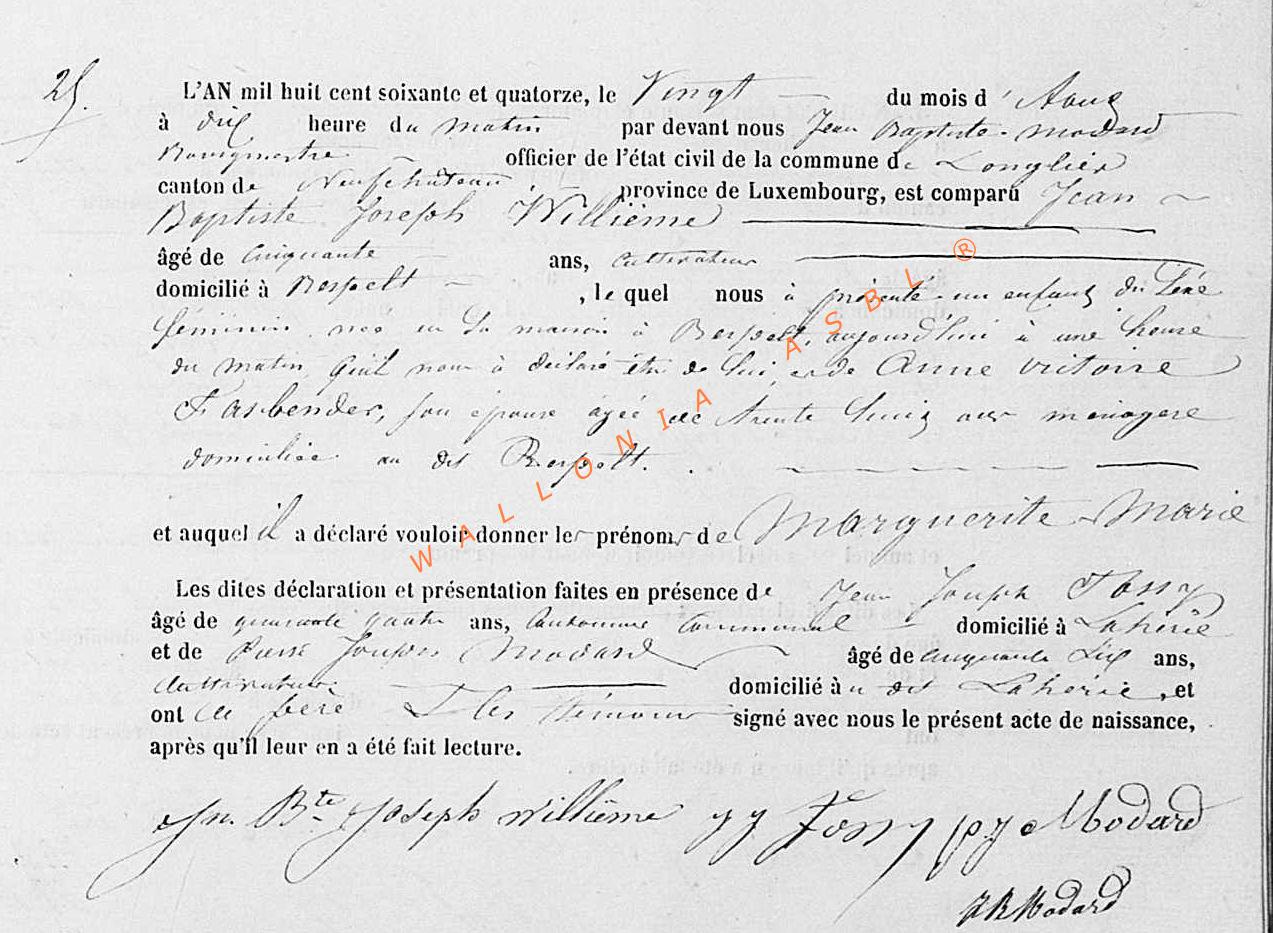 25.
L'AN mil huit cent soixante et quatorze, le Vingt du mois d' Aout
à dix heure du matin par devant nous Jean Baptiste Modard
Bourgmestre officier de l'état civil de la commune de Longlier
canton de Neufchateau, province de Luxembourg, est comparu Jean
Baptiste Joseph Willième
âgé de cinquante ans, Cultivateur
domicilié à Respelt , le quel nous à présenté un enfant du Séxe
féminin née en Sa maison à Respelt, aujourd'hui à une heure
du matin, qu'il nous à déclaré être de Lui, et de Anne victoire
Fasbender, son épouse âgée de trente huit ans ménagere
domiciliée au dit Respelt.
et auquel il a déclaré vouloir donner les prénoms de Marguerite Marie
Les dites déclaration et présentation faites en présence de Jean Joseph Fossy
âgé de quarante quatre ans, Cantonnier Communal domicilié à Lahérie
et de Pierre Joseph Modard âgé de cinquante Six ans,
Cultivateur domicilié à u dit Lahérie , et
ont Le pere & les témoins signé avec nous le présent acte de naissance,
après qu'il leur en a été fait lecture.
Jn. Bte Joseph Willième JJ Fossy pJ Modard
JB Modard
WALLONIA ASBL ®